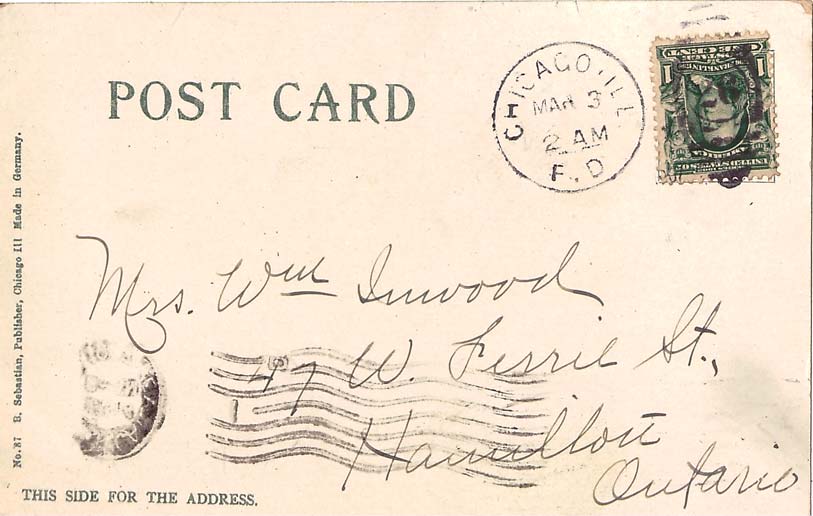 POST CARD
CHICAGO, ILL
MAR 3
2 AM
F. D
1 1
Mrs. Wm Inwood
47 W. Ferrie St.,
Hamilton
Ontario
No. 87 B. Sebastian, Publisher, Chicago Ill Made in Germany.
THIS SIDE FOR THE ADDRESS.